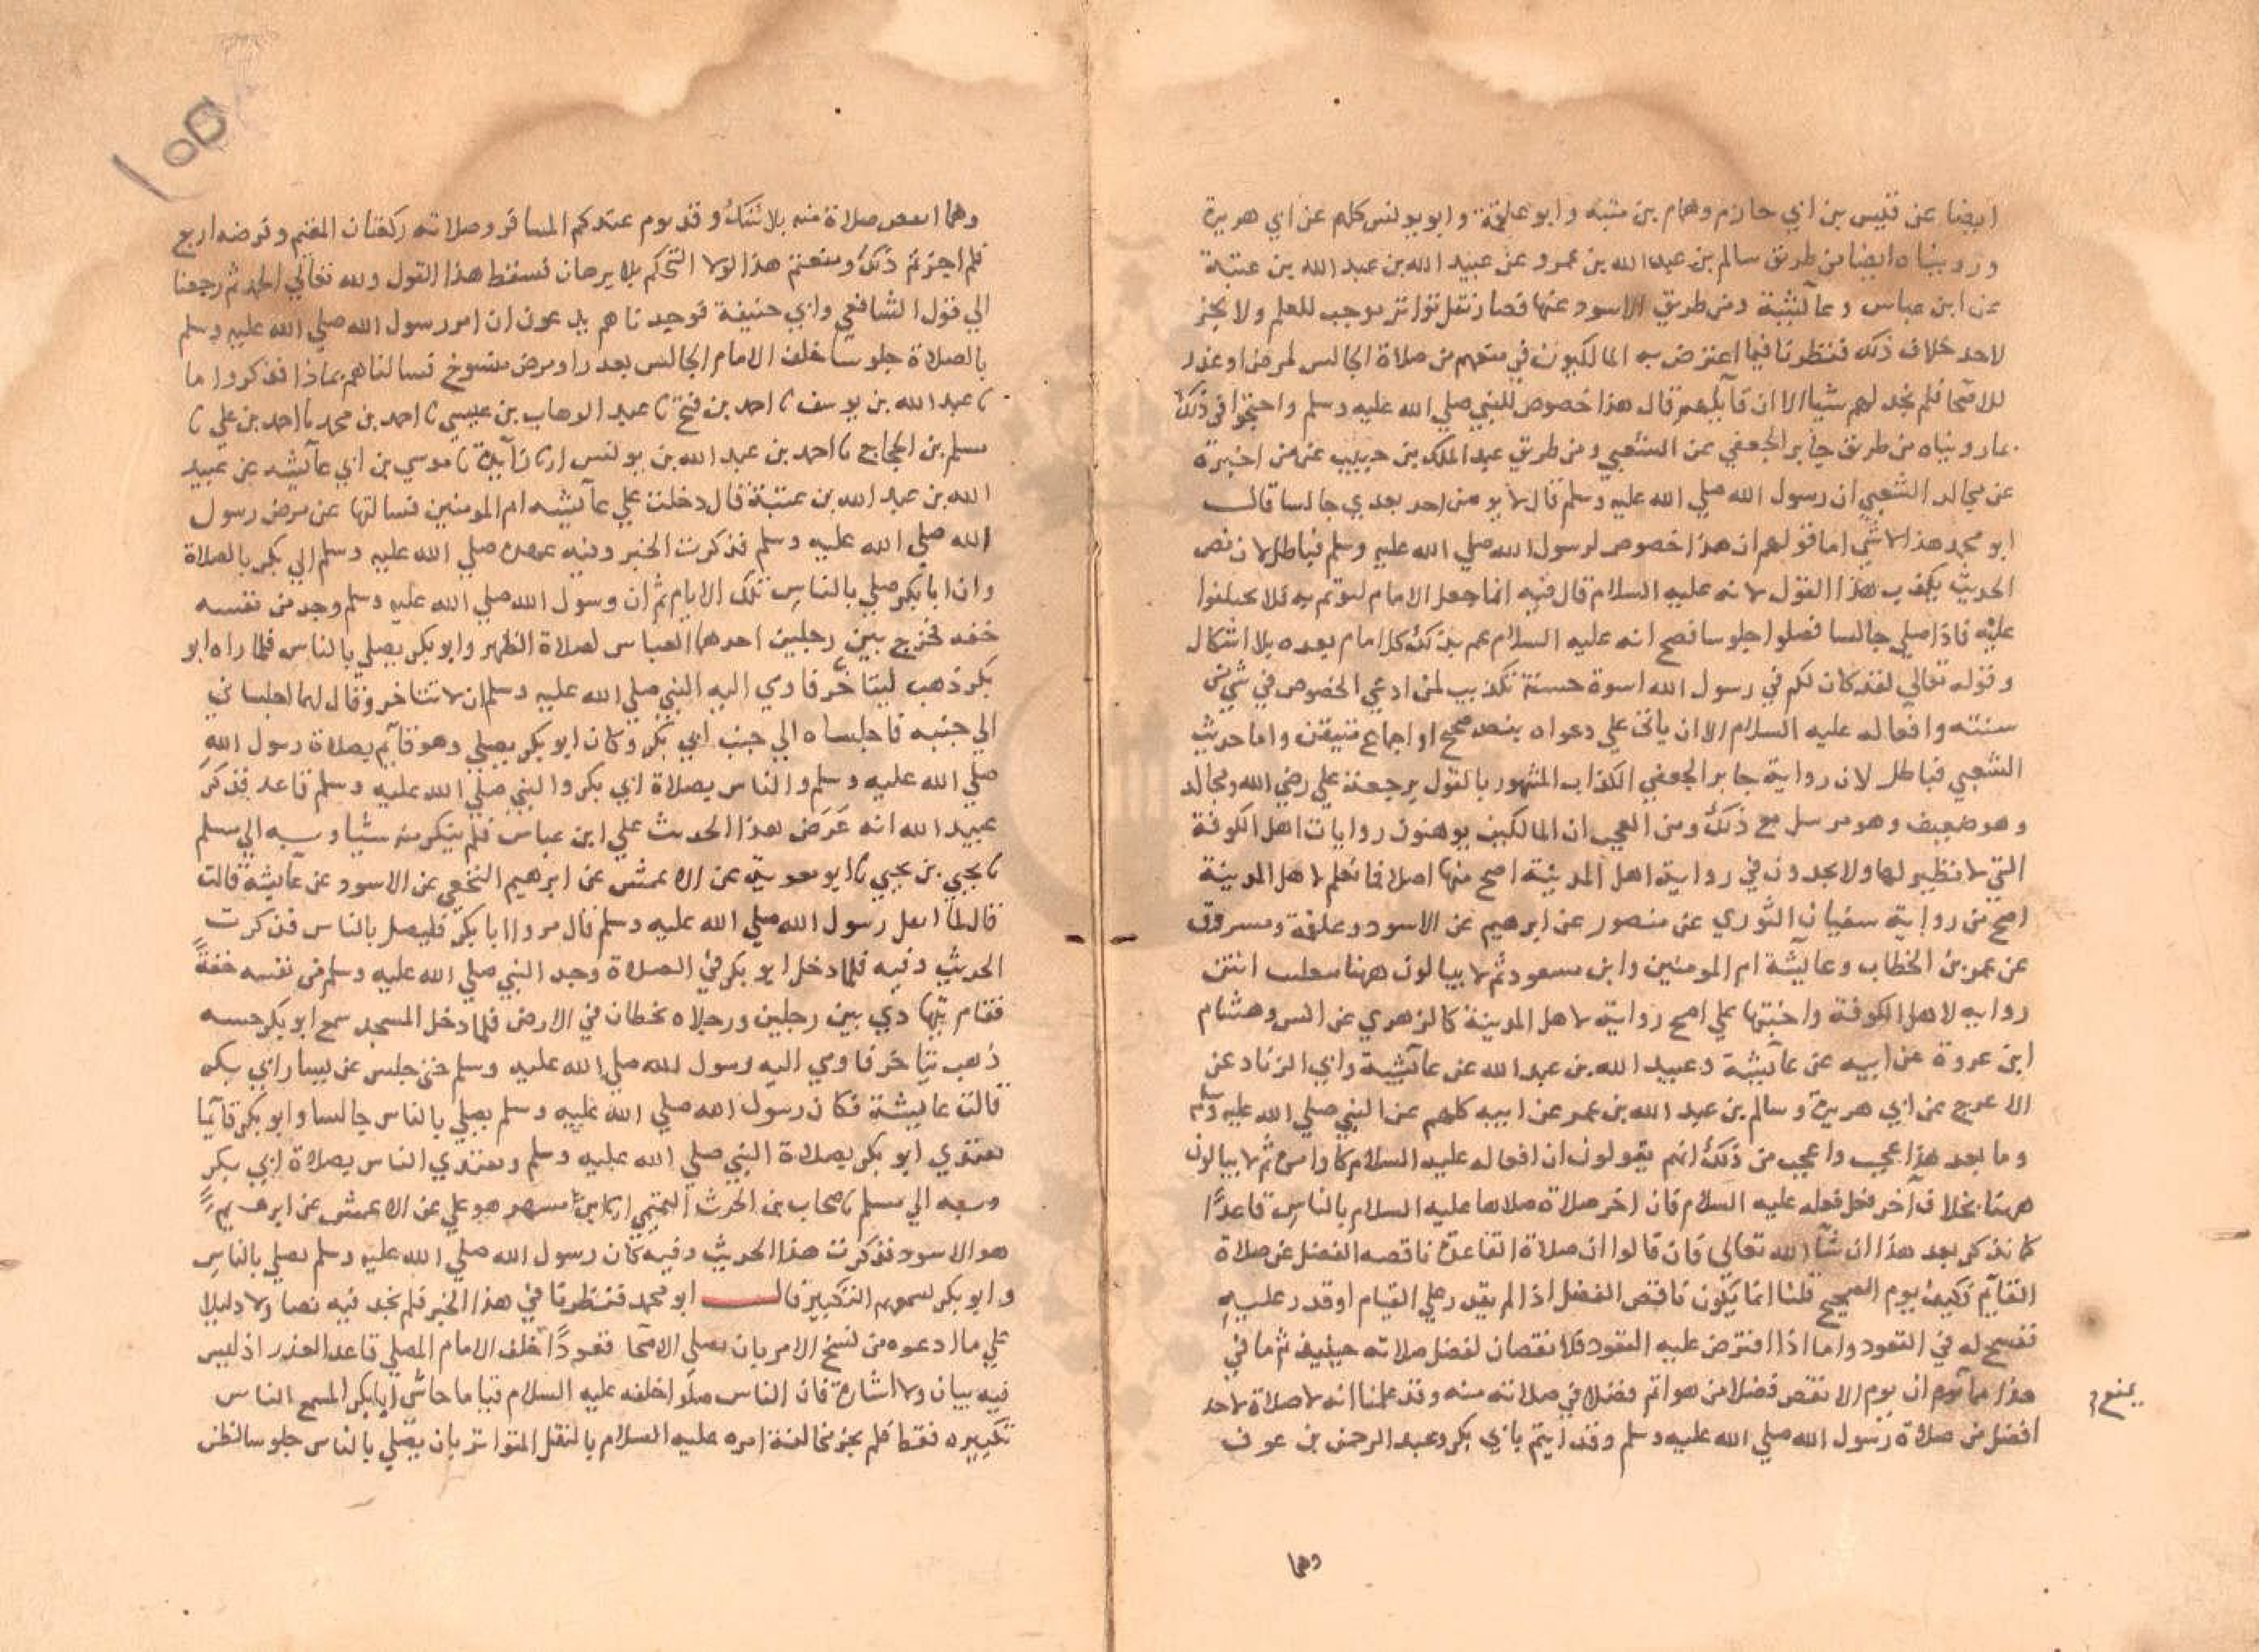 ايضا عن قيس بن ابي حازم وهمام بن منبه وابو علقمة وابو يونس كلهم عن ابي هريرة
ورويناه ايضا من طريق سالم بن عبد الله بن عمرو عن عبيد الله بن عبد الله بن عتبة
عن ابن عباس وعآئشة ومن طريق الاسود عنها فصار نقل تواتر يوجب للعلم ولا يجز
لاحد خلاف ذلك فنظرنا فيما اعترض به المالكيون في منعهم من صلاة الجالس لمرض او عذر
للاصحا فلم نجد لهم شيا الا ان قآئلهم قال هذا خصوص للنبي صلي الله عليه وسلم واحتجوا في ذلك
بما رويناه من طريق جابر الجعفي عن الشعبي ومن طريق عبد الملك بن حبيب عن من اخبره
عن مجالد الشعبي ان رسول الله صلي الله عليه وسلم قال لا يومن احد بعدي جالسا قال
ابو محمد هذا لا شي اما قولهم ان هذا خصوص لرسول الله صلي الله عليه وسلم فباطل لان نص
الحديث يكذب هذا القول لانه عليه السلام قال فيه انما جعل الامام ليوتم به فلا تختلفوا
عليه فاذا صلي جالسا فصلوا جلوسا فصح انه عليه السلام عم بذلك كل امام بعده بلا اشكال
وقوله تعالي لقد كان لكم في رسول الله اسوة حسنة تكذيب لمن ادعي الخصوص في شي من
سننه وافعاله عليه السلام الا ان ياتي علي دعواه بنص صحيح او اجماع متيقن واما حديث
الشعبي فباطل لان رواية جابر الجعفي الكذاب المشهور بالقول برجعة علي رضي الله ومجالد
وهو ضعيف وهو مرسل مع ذلك ومن العجب ان المالكيين يوهنون روايات اهل الكوفة
التي لا نظير لها ولا يجدون في رواية اهل المدينة اصح منها اصلا فما نعلم لاهل المدينة
اصح من رواية سفيان الثوري عن منصور عن ابرهيم عن الاسود وعلقمة ومسروق
عن عمر بن الخطاب وعآئشة ام المومنين وابن مسعود ثم لا يبالون ههنا انتن
روايه لاهل الكوفة علي اصح رواية لاهل المدينة كالزهري عن انس وهشام
ابن عروة عن ابيه عن عآئشة وعبيد الله بن عبد الله عن عآئشة وابي الزناد عن
الاعرج عن ابي هريرة وسالم بن عبد الله بن عمر عن ابيه كلهم عن النبي صلي الله عليه وسلم
وما بعد هذا عجب واعجب من ذلك انهم يقولون ان افعاله عليه السلام كاوامره ثم لا يبالون
ههنا بخلاف آخر فعل فعله عليه السلام فان اخر صلاة صلاها عليه السلام بالناس قاعدًا
كما نذكر بعد هذا ان شآ الله تعالي فان قالوا ان صلاة القاعد ناقصه الفضل عن صلاة
القآئم فكيف يوم الصحيح قلنا انما يكون ناقص الفضل اذا لم يقدر علي القيام او قدر عليه
ففسح له في القعود واما اذا افترض عليه القعود فلا نقصان لفضل صلاته حينيذ ثم ما في
هذا مما ان يوم الانقص فضلا من هو اتم فضلا في صلاته منه وقد علمنا انه لا صلاة لاحد
يمنع
افضل من صلاة رسول الله صلي الله عليه وسلم وقد ايتم بابي بكر وعبد الرحمن بن عوف
وهما
١٥٥
وهما انقص صلاة منه بلا شك وقد يوم عندكم المسافر وصلاته ركعتان المقيم وفرضه اربع
فلم اجزتم ذلك ومنعتم هذا لولا التحكم بلا برهان فسقط هذا القول ولله تعالي الحمد ثم رجعنا
الي قول الشافعي وابي حنيفة فوجدناهم يدعون ان امر رسول الله صلي الله عليه وسلم
بالصلاة جلوسا خلف الامام الجالس بعذر او مرض منسوخ فسالناهم بماذا فذكروا ما
نا عبد الله بن يوسف نا احمد بن فتح نا عبد الوهاب بن عيسي نا احمد بن محمد نا احمد بن علي نا
مسلم بن الحجاج نا احمد بن عبد الله بن يونس نا زآئدة نا موسي بن ابي عآئشه عن عبيد
الله بن عبد الله بن عتبة قال دخلت علي عآئشه ام المومنين فسالتها عن مرض رسول
الله صلي الله عليه وسلم فذكرت الخبر وفيه عهده صلي الله عليه وسلم الي ابي بكر بالصلاة
وان ابا بكر صلي بالناس تلك الايام ثم ان رسول الله صلي الله عليه وسلم وجد من نفسه
خفه فخرج بين رجلين احدهما العباس لصلاة الظهر وابو بكر يصلي بالناس فلما راه ابو
بكر ذهب ليتاخر فاومي اليه النبي صلي الله عليه وسلم ان لا تتاخر وقال لهما اجلساني
الي جنبه فاجلساه الي جنب ابي بكر وكان ابو بكر يصلي وهو قآئم بصلاة رسول الله
صلي الله عليه وسلم والناس بصلاة ابي بكر والنبي صلي الله عليه وسلم قاعد فذكر
عبيد الله انه عَرَض هذا الحديث علي ابن عباس فلم ينكر منه شيا وبه الي مسلم
نا يحيي بن يحيي نا ابو معوية عن الاعمش عن ابرهيم النخعي عن الاسود عن عآئشة قالت
قال لما ثقل رسول الله صلي الله عليه وسلم قال مروا ابا بكر فليصل بالناس فذكرت
الحديث وفيه فلما دخل ابو بكر في الصلاة وجد النبي صلي الله عليه وسلم من نفسه خفةً
فقام يتهادي بين رجلين ورجلاه تخطان في الارض فلما دخل المسجد سمع ابو بكر حسه
ذهب يتاخر فاومي اليه رسول الله صلي الله عليه وسلم حتي جلس عن يسار ابي بكر
قالت عايشة فكان رسول الله صلي الله عليه وسلم يصلي بالناس جالسا وابو بكر قآئما
يقتدي ابو بكر بصلاة النبي صلي الله عليه وسلم ويقتدي الناس بصلاة ابي بكر
وبه الي مسلم نا منجاب بن الحرث التميمي ابن مسهر هو علي عن الاعمش عن ابرهيم
هو الاسود فذكرت هذا الحديث وفيه كان رسول الله صلي الله عليه وسلم يصلي بالناس
وابو بكر يسمعهم التكبير قال ابو محمد فنظرنا في هذا الخبر فلم نجد فيه نصا ولا دليلا
علي ما ادعوه من نسخ الامر بان يصلي الاصحا قعودًا خلف الامام المصلي قاعدا لعذر اذ ليس
فيه بيان ولا اشارة فان الناس صلوا خلفه عليه السلام قياما حاشي ابا بكر المسمع الناس
تكبيره فقط فلم يجز مخالفة امره عليه السلام بالنقل المتواتر بان يصلي بالناس جلوسا لظن